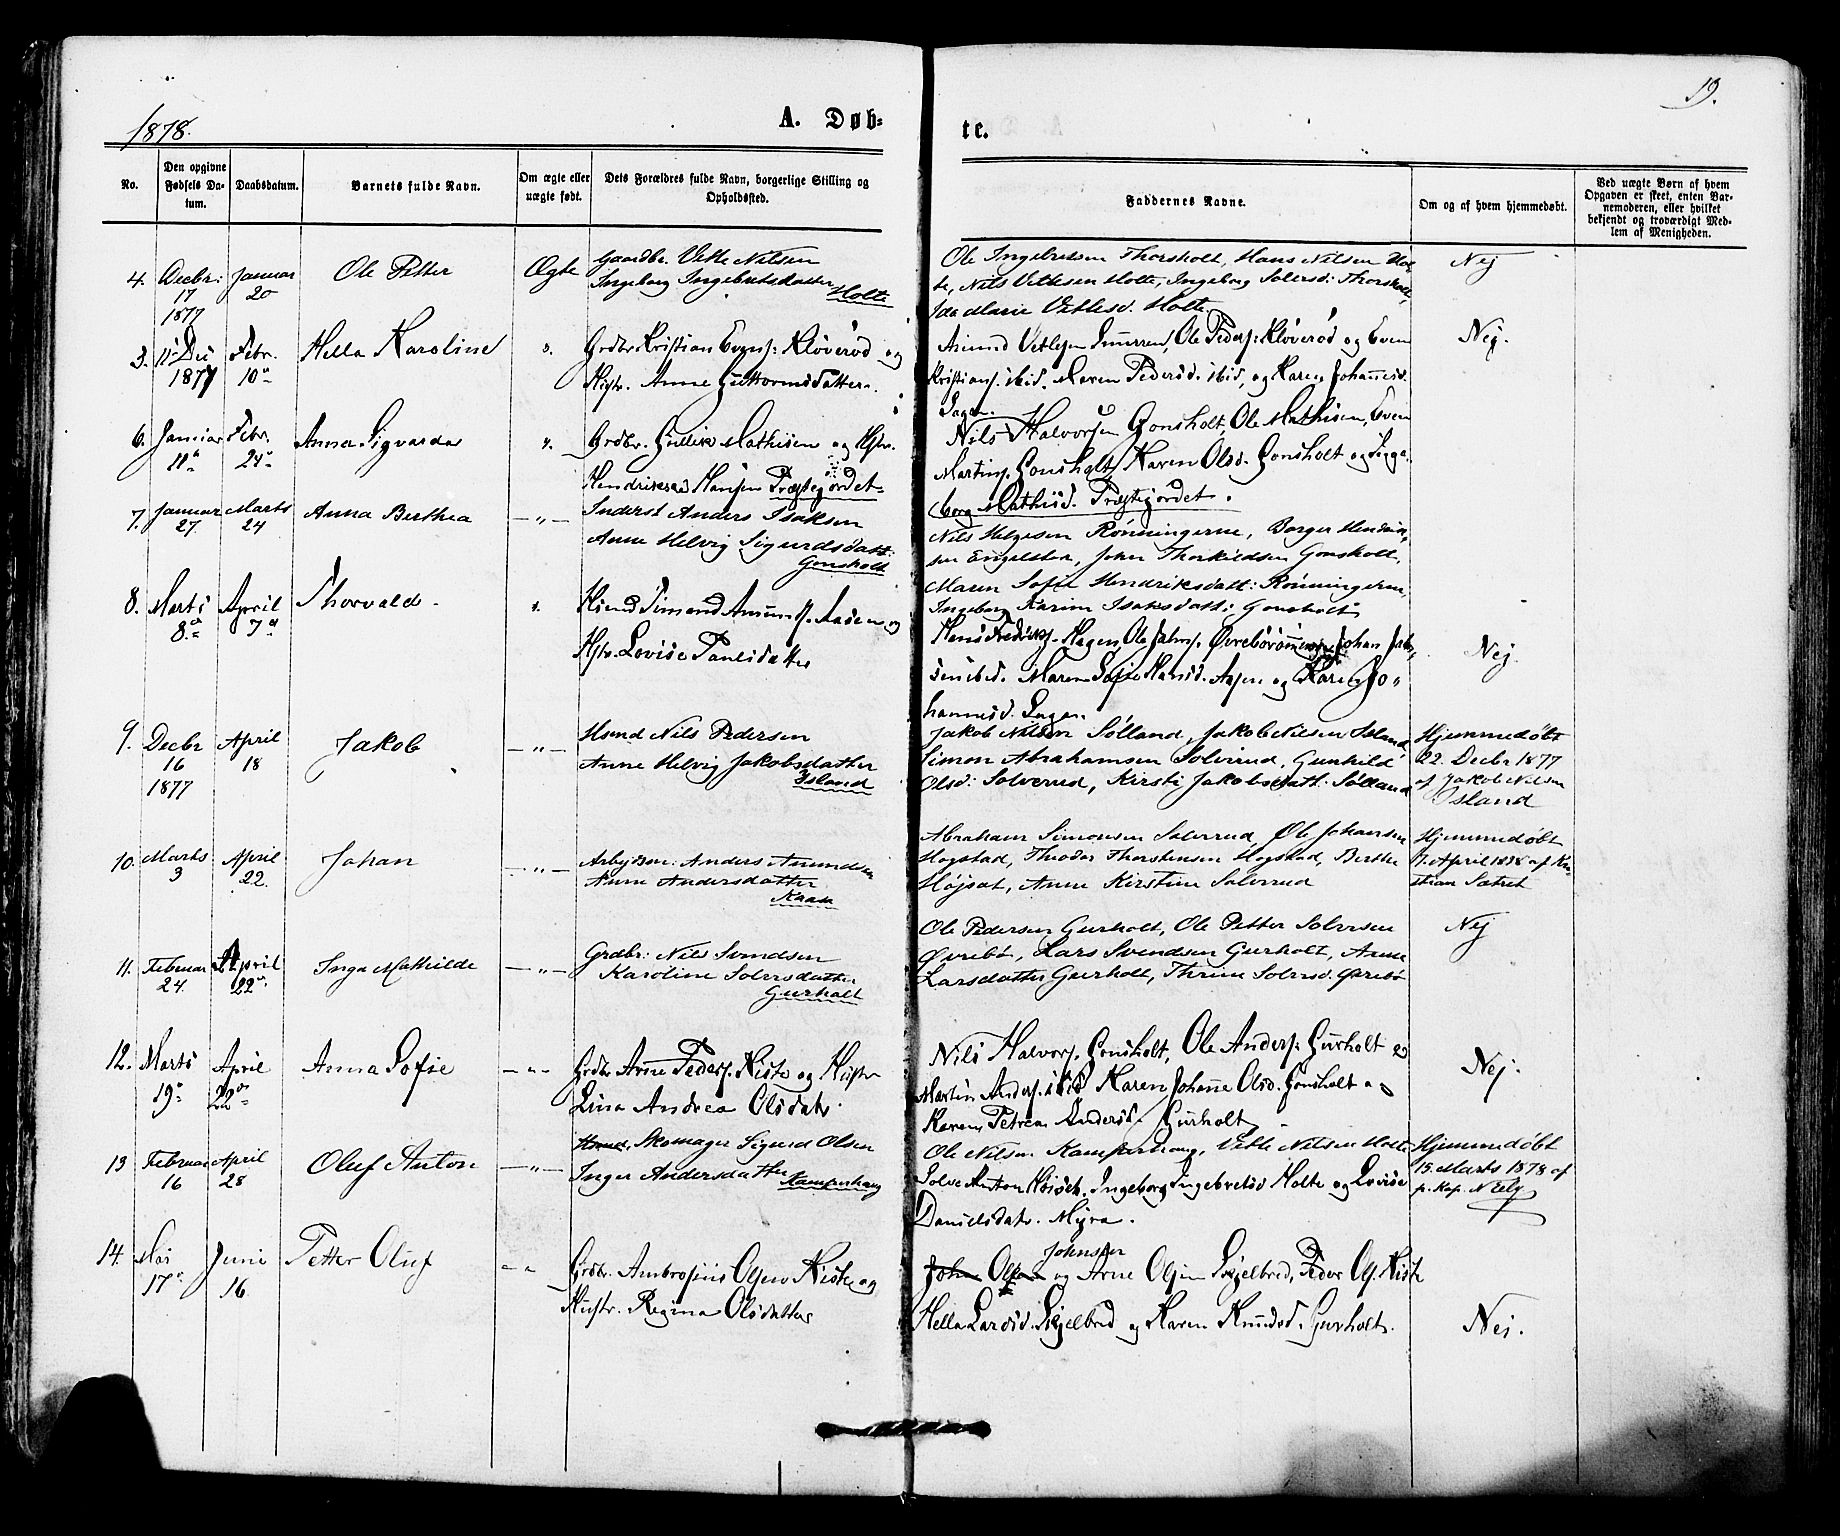 19.
1878.
A. Døb-
te.
No.
Den opgivne Fødsels Datum.
Daabsdatum.
Barnets fulde Navn.
Om ægte eller uægte født.
Dets Forældres fulde Navn, borgerlige Stilling og Opholdssted.
Faddernes Navne.
Om og af hvem hjemmedøbt.
Ved uægte Børn af hvem Opgaven er skeet, enten Barnemoderen, eller hvilket bekjendt og troværdigt Medlem af Menigheden.
4. Decbr: 17 1877
Januar 20
Ole Petter
Ægte
Gaardbr. Vetle Nilsen
Ingeborg Ingebretsdatter
Holte
Ole Ingebretsen Thorsholt, Hans Nilsen Hol-
te, Nils Vetlesen Holte, Ingeborg Solvesd: Thorsholt,
Ida Marie Vetlesd. Holte.
Nej
11 Dec 1877
Febr. 10
Hella Karoline
Grdbr. Kristian Evens. Kløverød og
Hstr. Anne Guttormsdatter
Amund Vetlesen, Ole Peders. Kløverød og Even
Kristians. ibid. Maren Pedersd. ibid, og Karen Johannesd.
Nej.
6. Januar 11
Febr. 24
Anna Sigvarda
Grdbr. Gullik Mathisen og Hstr.
Hansen Præstejordet
Nils Halvorsen Gonsholt, Ole Mathisen, Even
Martins. Gonsholt, Karen Olsd. Gonsholt og Inge-
borg Mathisd. Præstejordet.
7. Januar 27
Marts 24
Anna Berthea
— " —
Inderst Anders Isaksen
Anne Helvig Sigurdsdatt:
Gonsholt
Nils Helgesen Rønningerne, Borger Hendrik-
sen Engelsten, John Thorkildsen Gonsholt,
Maren Sofie Hendriksdatt: Rønningerne,
Ingeborg Karine Isaksdatt: Gonsholt
8. Marts 8
April 7
Thorvald
Hsmd Simund Amunds. Aasen og
Hstr. Lovise Paulsdatter
Hans Fredriks. Hagen, Ole Johns. Øvrebø, Johan
ibid. Maren Sofie Hansd. Aasen og Karen Jo-
hannesd.
Nej.
9. Decbr 16 1877
April 18
Jakob
— " —
Hsmd Nils Pedersen
Anne Helvig Jakobsdatter
Island
Jakob Nilsen Sølland, Jakob Nilsen Island
Simon Abrahamsen Solverud, Gunhild
Olsd: Solverud, Kirsti Jakobsdatt: Sølland
Hjemmedøbt
22. Decbr 1877
af Jakob Nilsen
Island
10. Marts 3
April 22.
Johan
— " —
Arbejdsm: Anders Amundsen
Anne Andersdatter
Kaasa
Abraham Simonsen Solverud, Ole Johansen
Hogstad, Theodor Thorstensen Hogstad, Berthe
Højsæt, Anne Kirstine Solverud
Hjemmedøbt
April 1878 af Kri-
stian Sætret
11. Februar 24.
April 22
Inga Mathilde
— " —
Grdbr: Nils Svendsen
Karoline Solvesdatter
Gurholt
Ole Pedersen Gurholt, Ole Petter Solvesen
Øvrebø, Lars Svendsen Gurholt, Anne
Larsdatter Gurholt, Thrine Solvesd. Øvrebø
Nej
12. Marts 19
April 22
Anna Sofie
Grdbr Arne Peders. Kiste og Hustr
Lina Andrea Olsdatr.
Nils Halvors. Gonsholt, Ole Anders. Gurholt og
Martin Anders. ibid Karen Johanne Olsd. Gonsholt og
Karen Petrea Andersd. Gurholt
Nej.
13 Februar 16
April 28
Oluf Anton
— " —
Hsmd. Skomager Sigurd Olsen
Inger Andersdatter Kamperhaug
Ole Nilsen Kamperhaug, Vetle Nilsen Holte
Solve Anton, Ingeborg Ingebretsd Holte og Lovise
Danielsdatr. Myra.
Hjemmedøbt
15. Marts 1878 af
p. Kap.
14. Mai 17
Juni 16
Petter Oluf
Grdbr. Ambrosius Olsen Kiste og
Hustr. Regina Olsdatter
Johnsen
John Olsen og Arne Olsen Skjelbred, Peder Ols. Kiste
Hella Larsd. Skjelbred og Karen Knudsd. Gurholt.
Nei.